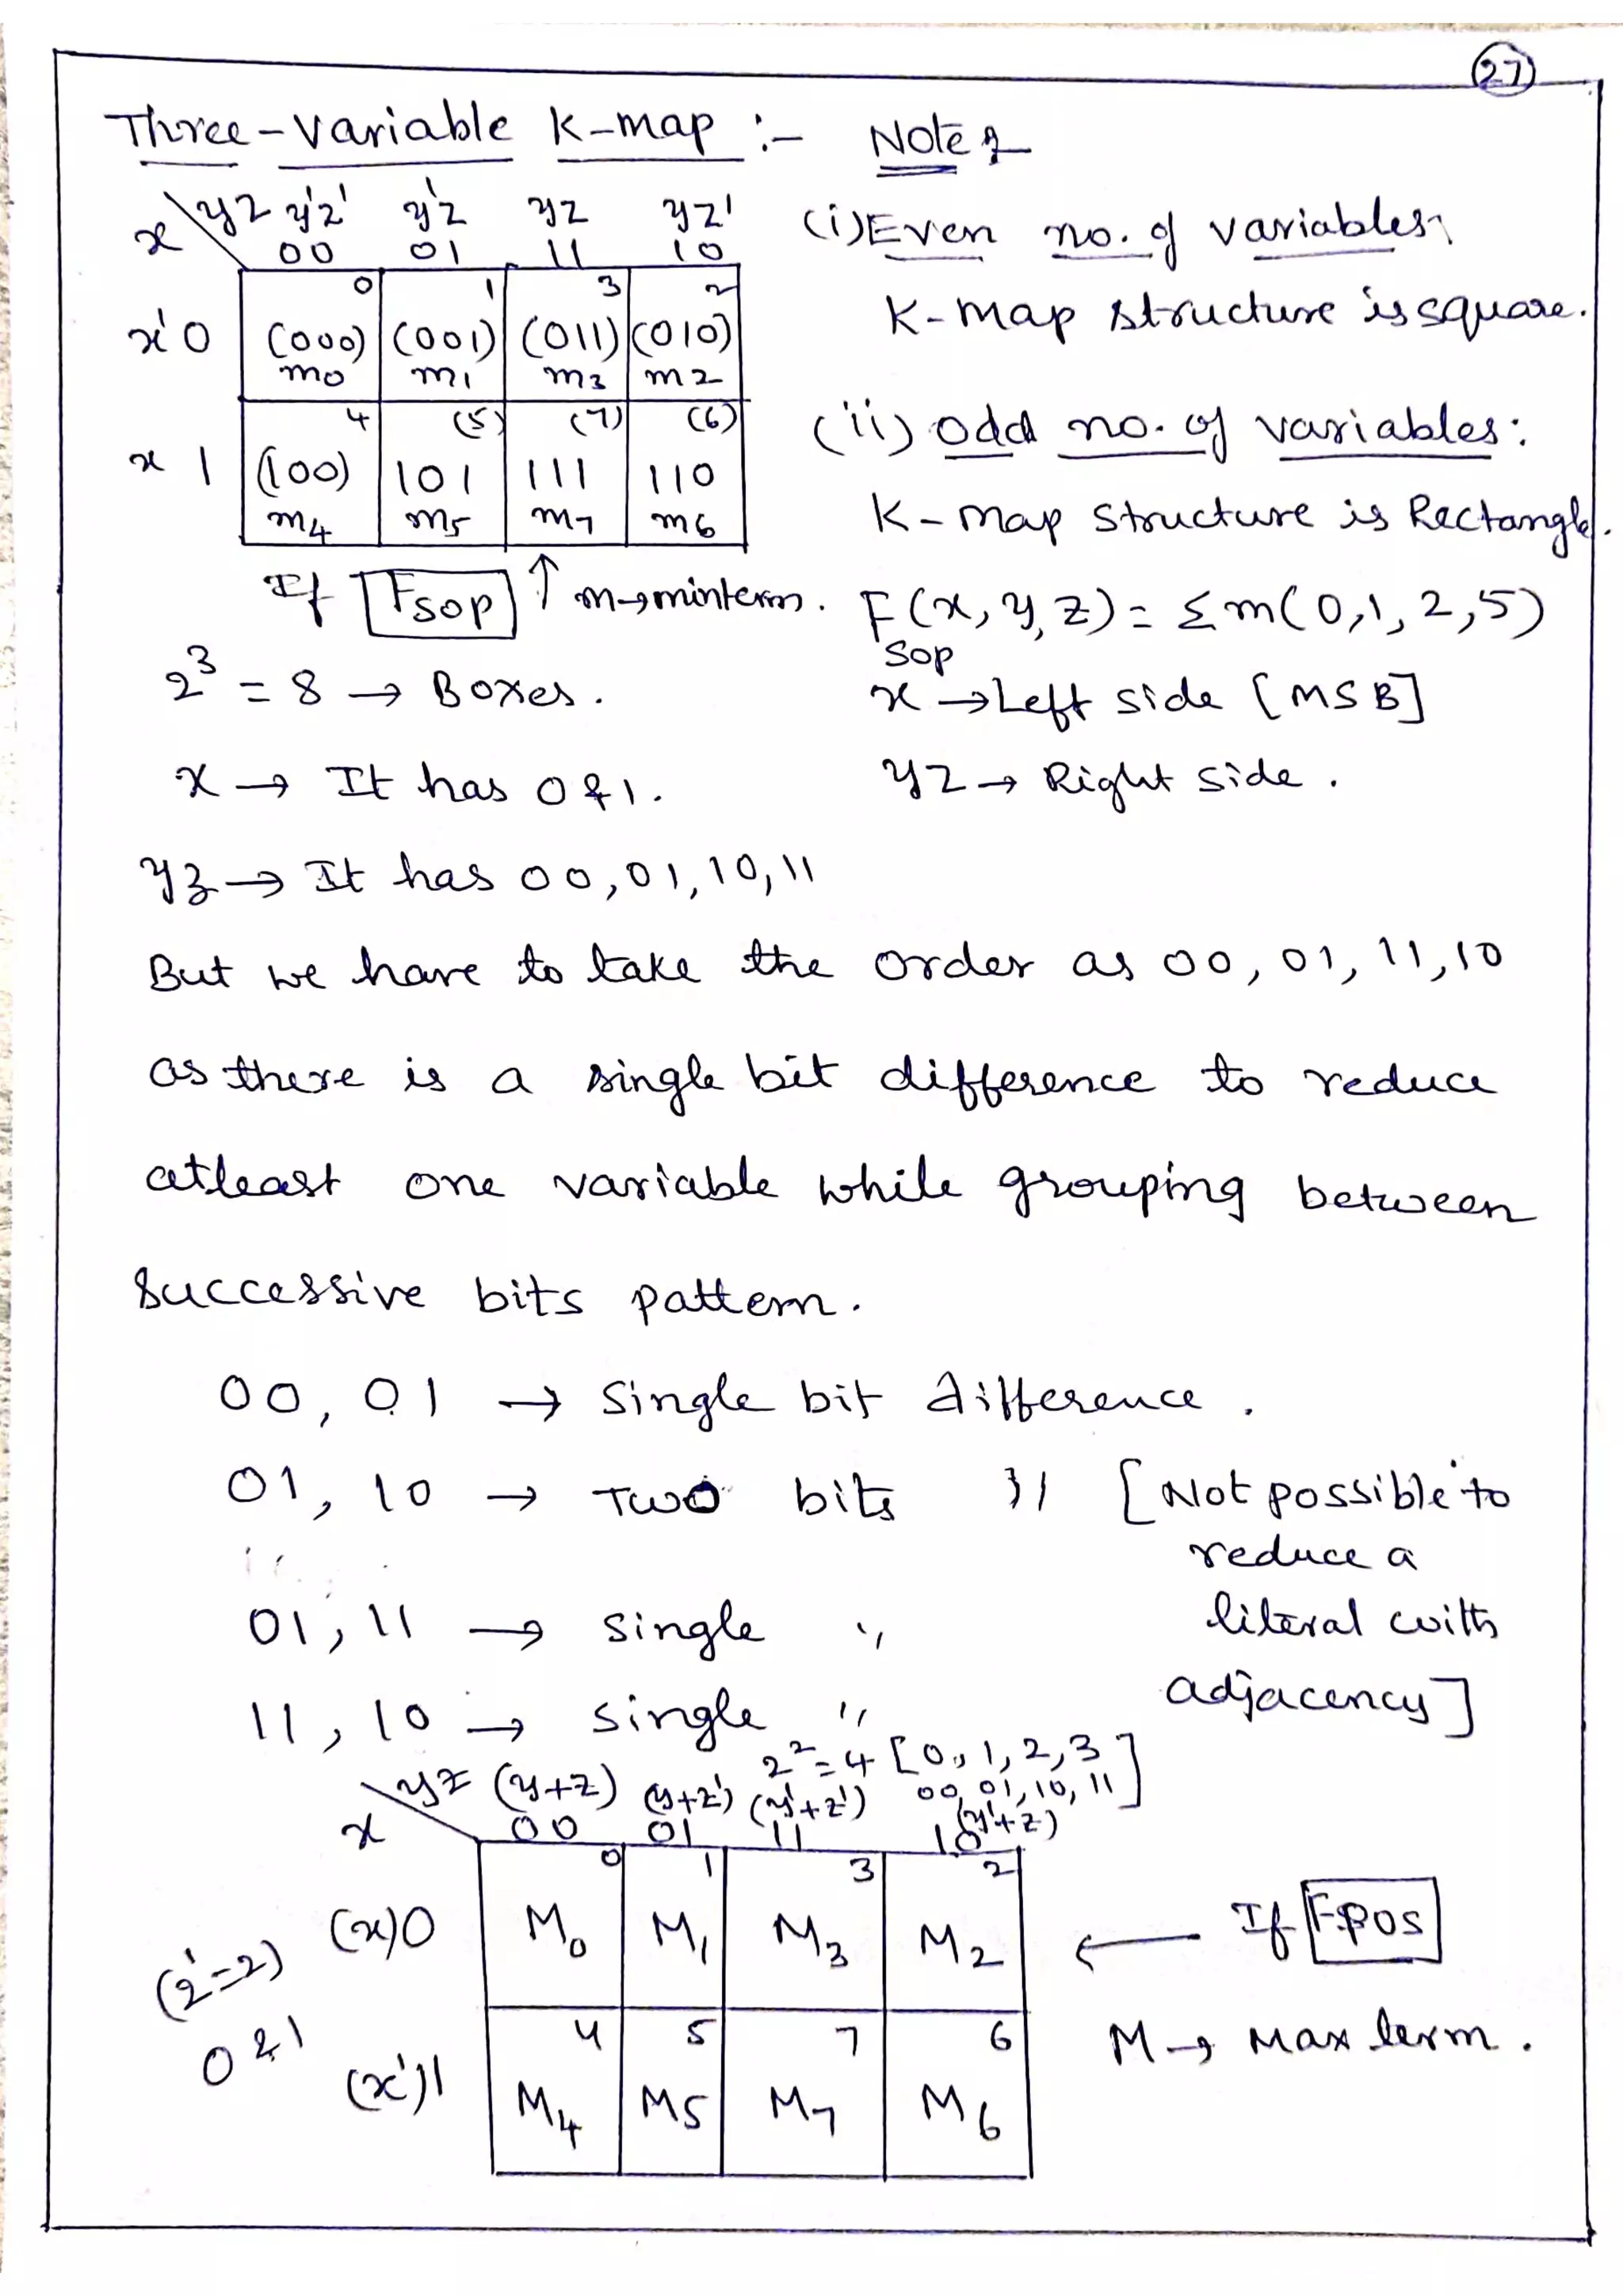 27
Three-variable K-map :-
yz y'z' y'z yz yz'
x 00 01 11 10
0 1 3 2
x' 0 (000) (001) (011) (010)
m0 m1 m3 m2
4 (5) (7) (6)
x 1 (100) 101 111 110
m4 m5 m7 m6
If FSOP ↑ m→minterm.
2³ = 8 → Boxes.
x → It has 0 & 1.
Note
(i) Even no. of variables,
K-map structure is square.
(ii) odd no. of variables:
K-map structure is Rectangle.
F(x, y, z) = Σm(0,1,2,5)
SOP
x → Left side [MSB]
yz → Right side.
yz → It has 00,01,10,11
But we have to take the order as 00, 01, 11, 10
as there is a single bit difference to reduce
atleast one variable while grouping between
successive bits pattern.
00, 01 → Single bit difference.
01, 10 → Two bits " [Not possible to
reduce a
01, 11 → single " literal with
11, 10 → single " adjacency]
2²=4 [0, 1, 2, 3
00, 01, 10, 11]
yz (y+z) (y+z') (y'+z') (y'+z)
x 00 01 11 10
0 1 3 2
(x)0 M0 M1 M3 M2 ← If FPOS
(2¹=2)
0 & 1
4 5 7 6
M → Max term.
(x')1 M4 M5 M7 M6